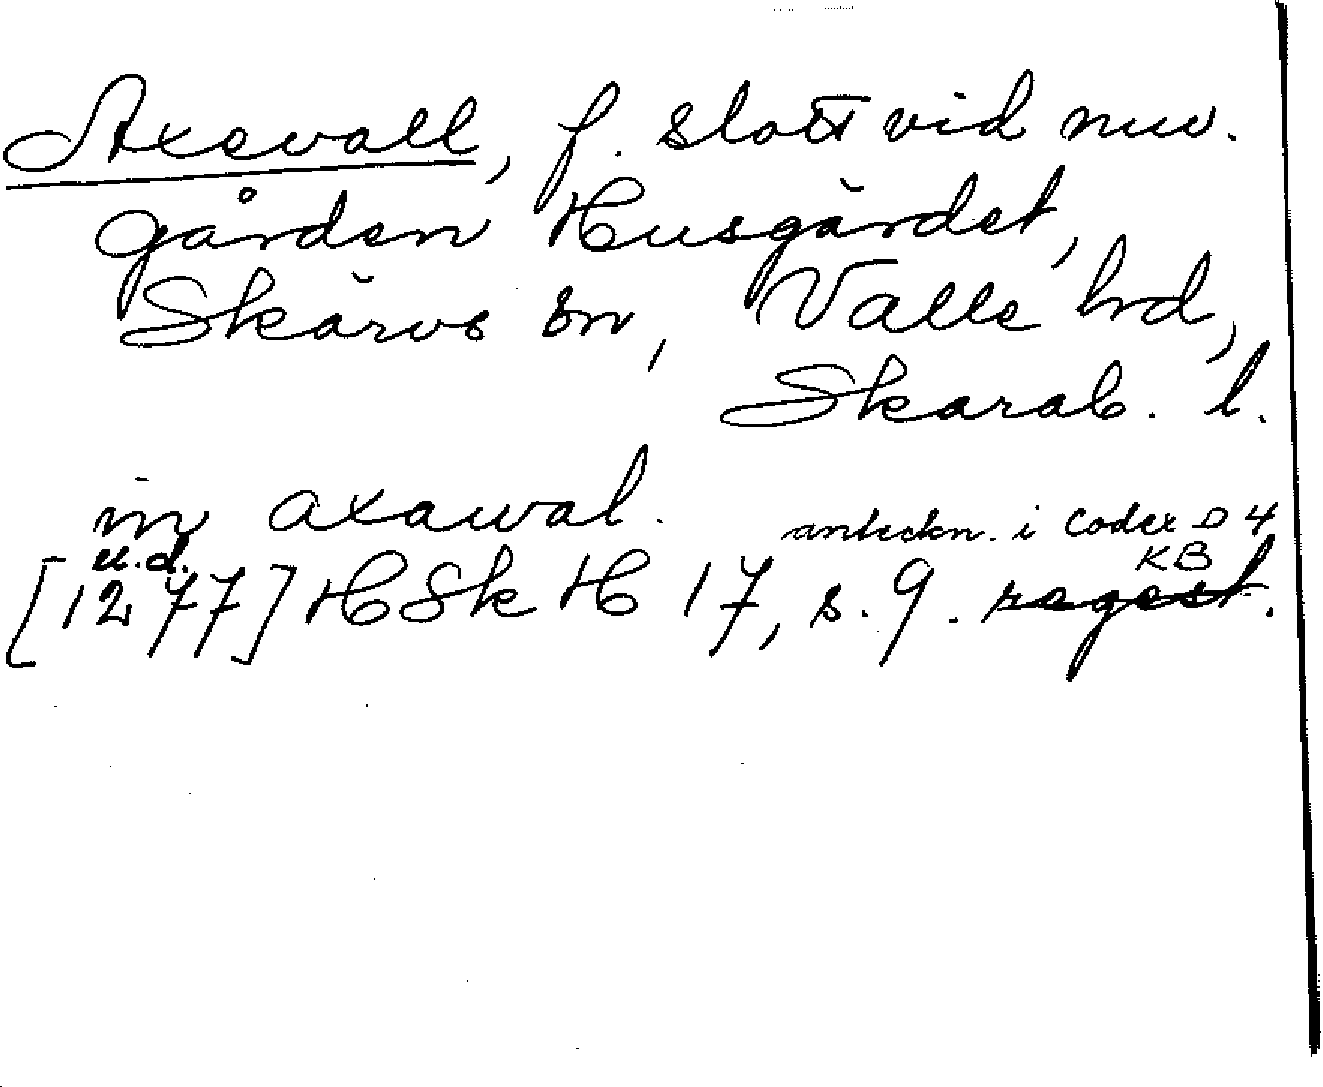 Axevall, f. slott vid nuv.
gården Husgärdet,
Skärvs sn, Valle hd,
Skarab. l.
in axawal.
anteckn. i Codex D 4
KB
u.d.
[1277] HSkH 17, s. 9. regest.